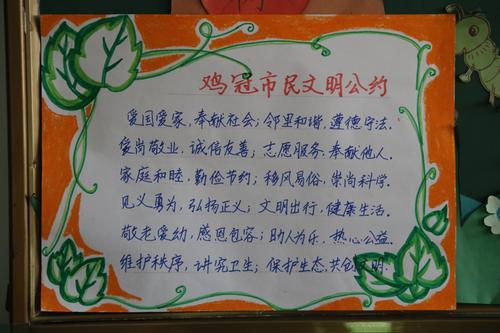 鸡冠市民文明公约
爱国爱家,奉献社会;邻里和谐,遵德守法.
爱岗敬业,诚信友善;志愿服务,奉献他人.
家庭和睦,勤俭节约;移风易俗,崇尚科学.
见义勇为,弘扬正义;文明出行,健康生活.
敬老爱幼,感恩包容;助人为乐,热心公益.
维护秩序,讲究卫生;保护生态,共创文明.